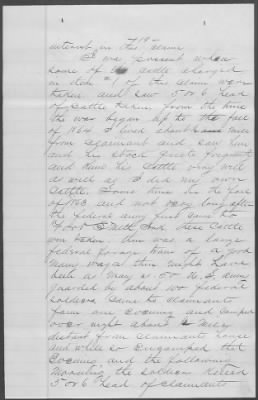 interest in this claim
I was present when
some of the cattle charged
in item #1 of this claim were
taken and saw 5 or 6 head
of cattle taken, from the time
the war began up to the fall
of 1864 I lived about mile
from claimant and saw him
and his stock quite frequently
and knew his cattle very well
as well as I did my own
cattle. Some time in the fall
of 1863 and not very long after
the federal army first came to
Fort Smith Ark these cattle
were taken. There was a large
federal forage train of a good
many wagons there might have
been as many as 50 U.S. army
guarded by about 100 federal
soldiers came to claimants
farm one evening and camped
over night about ½ mile
distant from claimants house
and while so encamped that
evening and the following
morning the soldiers killed
5 or 6 head of claimants